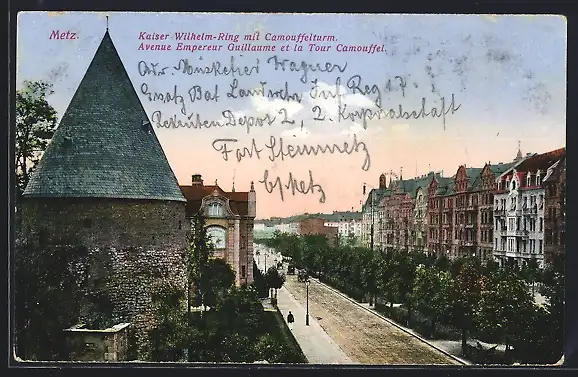 Metz.
Kaiser Wilhelm-Ring mit Camouffelturm.
Avenue Empereur Guillaume et la Tour Camouffel.
Adr. Musketier Wagner
Ersatz Bat Landwehr Inf Reg 17
Rekruten Depot 2, 2. Korporalschaft
Fort Steinmetz
b/Metz